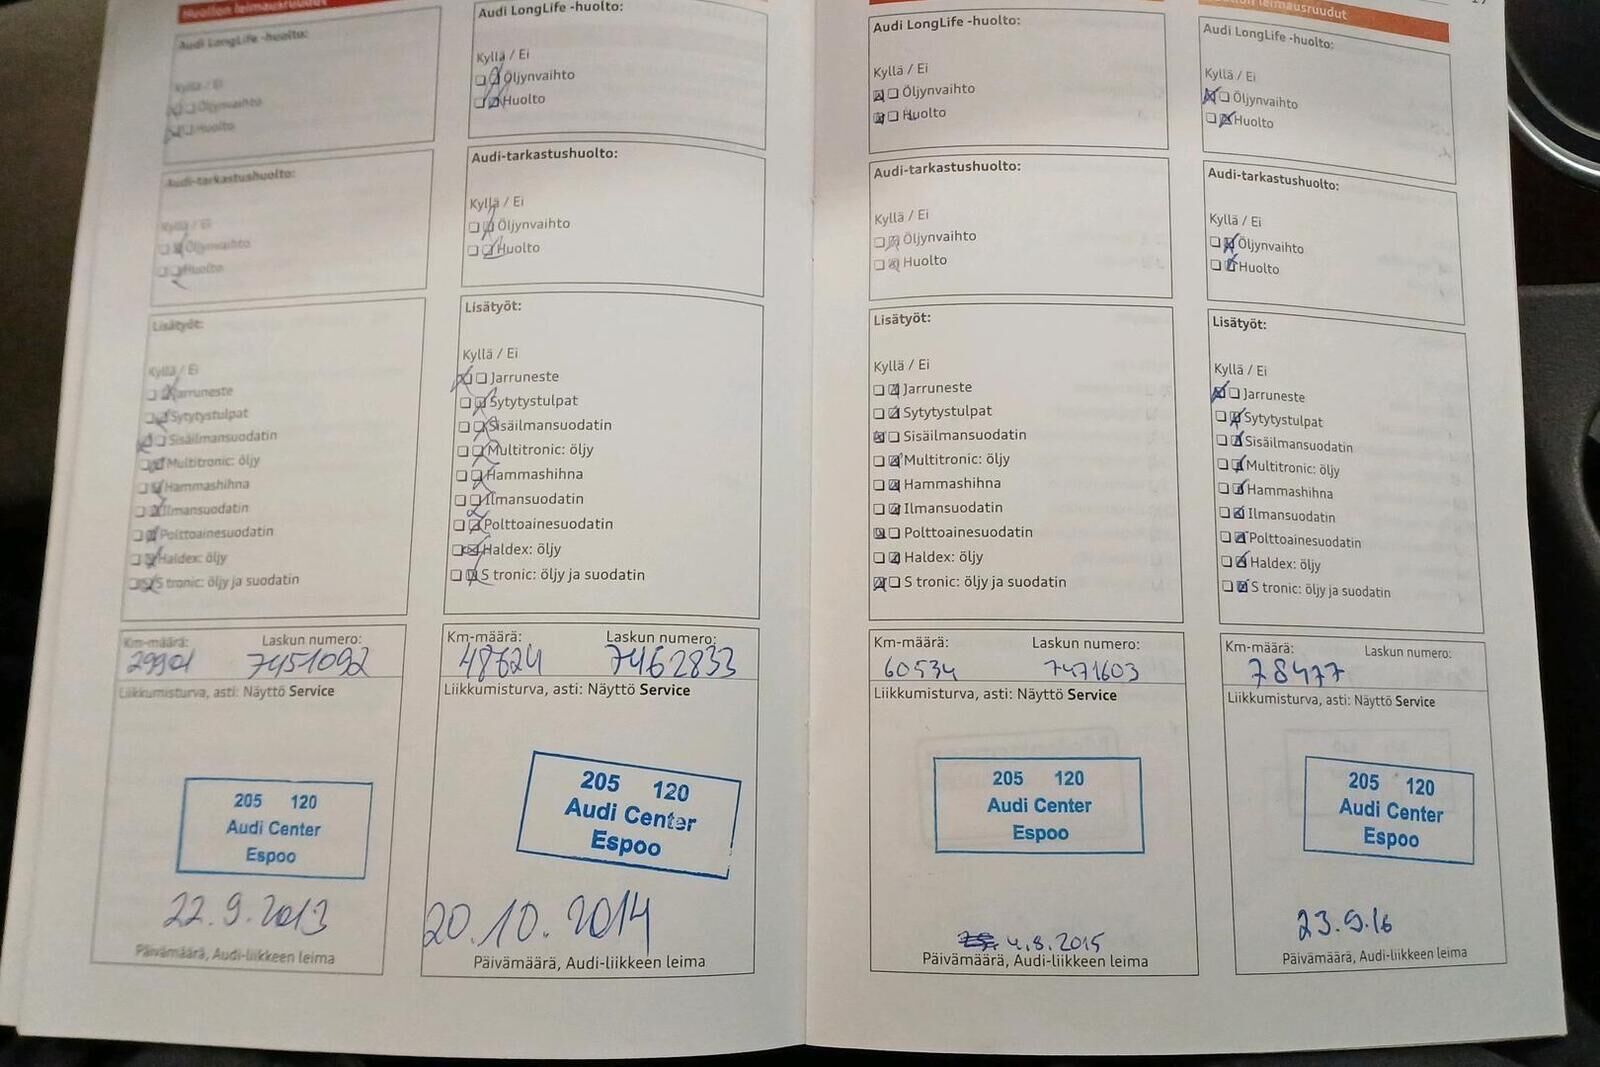 Huollon leimausruudut
Audi LongLife -huolto:
Kyllä / Ei
Öljynvaihto
Huolto
Audi-tarkastushuolto:
Kyllä / Ei
Öljynvaihto
Huolto
Lisätyöt:
Kyllä / Ei
Jarruneste
Sytytystulpat
Sisäilmansuodatin
Multitronic: öljy
Hammashihna
Ilmansuodatin
Polttoainesuodatin
Haldex: öljy
S tronic: öljy ja suodatin
Km-määrä: Laskun numero:
29901 7451092
Liikkumisturva, asti: Näyttö Service
205 120
Audi Center
Espoo
22.9.2013
Päivämäärä, Audi-liikkeen leima
Audi LongLife -huolto:
Kyllä / Ei
Öljynvaihto
Huolto
Audi-tarkastushuolto:
Kyllä / Ei
Öljynvaihto
Huolto
Lisätyöt:
Kyllä / Ei
Jarruneste
Sytytystulpat
Sisäilmansuodatin
Multitronic: öljy
Hammashihna
Ilmansuodatin
Polttoainesuodatin
Haldex: öljy
S tronic: öljy ja suodatin
Km-määrä: Laskun numero:
48624 7462833
Liikkumisturva, asti: Näyttö Service
205 120
Audi Center
Espoo
20.10.2014
Päivämäärä, Audi-liikkeen leima
Audi LongLife -huolto:
Kyllä / Ei
Öljynvaihto
Huolto
Audi-tarkastushuolto:
Kyllä / Ei
Öljynvaihto
Huolto
Lisätyöt:
Kyllä / Ei
Jarruneste
Sytytystulpat
Sisäilmansuodatin
Multitronic: öljy
Hammashihna
Ilmansuodatin
Polttoainesuodatin
Haldex: öljy
S tronic: öljy ja suodatin
Km-määrä: Laskun numero:
60534 7471603
Liikkumisturva, asti: Näyttö Service
205 120
Audi Center
Espoo
4.8.2015
Päivämäärä, Audi-liikkeen leima
leimausruudut
Audi LongLife -huolto:
Kyllä / Ei
Öljynvaihto
Huolto
Audi-tarkastushuolto:
Kyllä / Ei
Öljynvaihto
Huolto
Lisätyöt:
Kyllä / Ei
Jarruneste
Sytytystulpat
Sisäilmansuodatin
Multitronic: öljy
Hammashihna
Ilmansuodatin
Polttoainesuodatin
Haldex: öljy
S tronic: öljy ja suodatin
Km-määrä: Laskun numero:
78477
Liikkumisturva, asti: Näyttö Service
205 120
Audi Center
Espoo
23.9.16
Päivämäärä, Audi-liikkeen leima